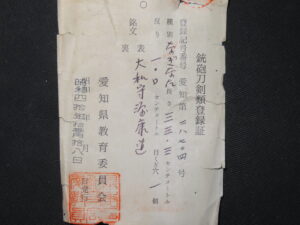 銃砲刀剣類登録証
登録記号番号 愛知 第二八七〇四号
種別 なぎなた
長さ 三三・三 センチメートル
反り 一・〇 センチメートル
目くぎ穴 一 個
銘文 表 大和守源康道
裏
昭和四拾 年 月 拾八日
愛知県教育委員会